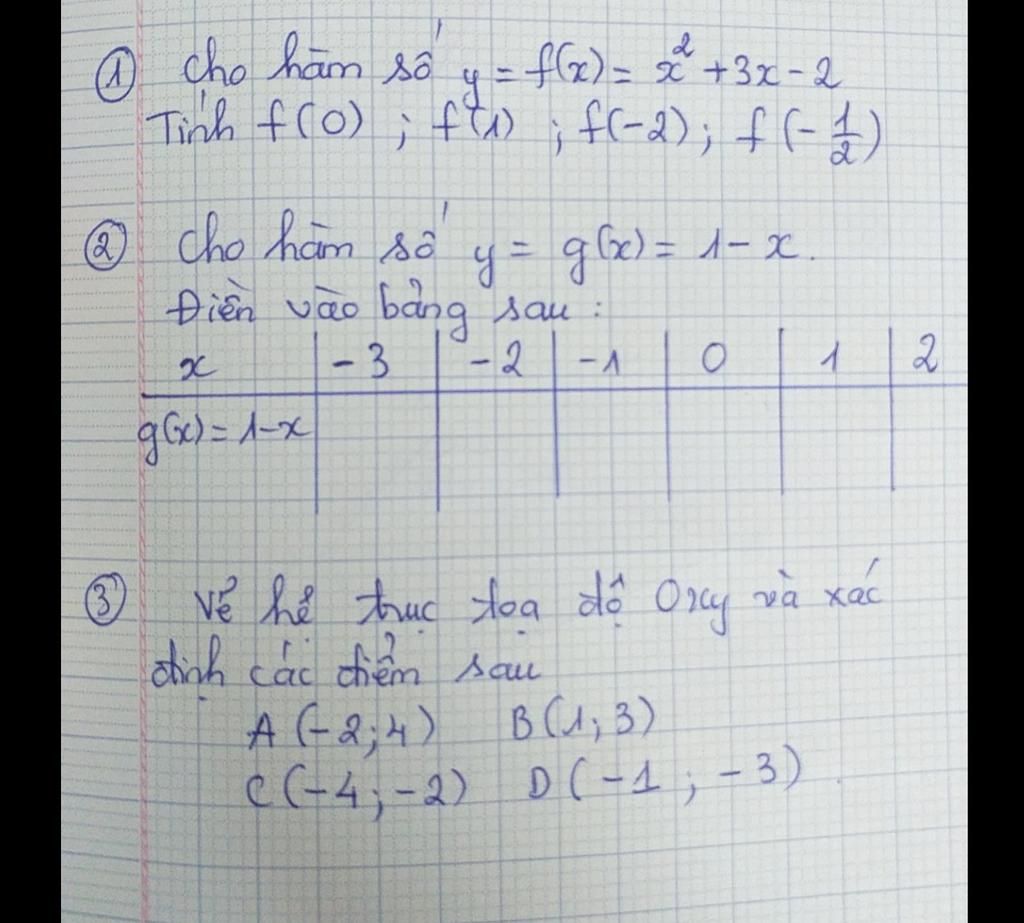 ① Cho hàm số y = f(x) = x² + 3x - 2
Tính f(0) ; f(1) ; f(-2) ; f(-1/2)
② Cho hàm số y = g(x) = 1 - x.
Điền vào bảng sau :
x | -3 | -2 | -1 | 0 | 1 | 2
g(x) = 1-x
③ Vẽ hệ trục tọa độ Oxy và xác
định các điểm sau
A (-2; 4) B (1; 3)
C (-4; -2) D (-1 ; -3) .